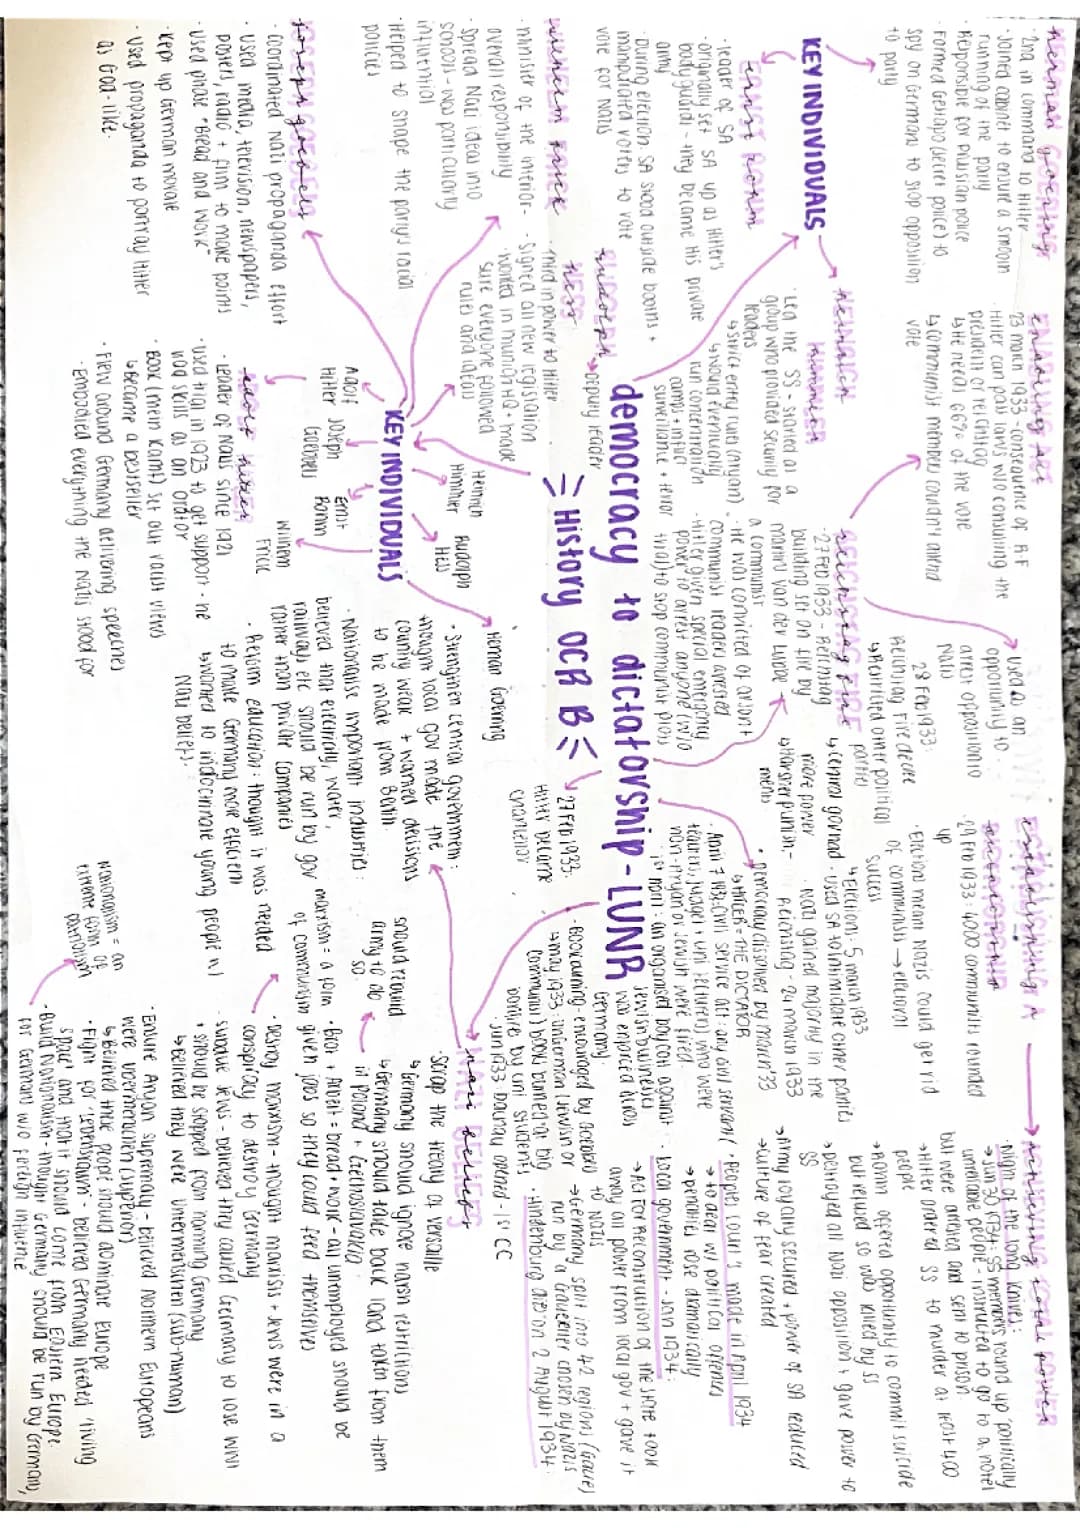 Herman goering
· 2nd in command to Hitler
· Joined cabinet to ensure a smooth
running of the party
· Responsible for Prussian police
· Formed Gestapo (secret police) to
spy on Germans to stop opposition
to party
KEY INDIVIDUALS
ERNST ROHM
· leader of SA
· originally set SA up as Hitler's
body guards - they became his private
army
· During election, SA stood outside booths +
manipulated voters to vote
vote for Nazis
HEINRICH
Himmler
· Led the SS - started as a
group who provided security for
leaders
↳ strict entry rules (Aryan)
↳ would eventually
run concentration
camps + inflict
surveillance + terror
WILHELM FRICK
· minister of the interior -
overall responsibility
· Spread Nazi ideas into
schools - was particularly
influential
· Helped to shape the party's racial
policies
RUDOLPH
HESS
→ Deputy leader
· third in power to Hitler
· Signed all new legislation
· worked in munich HQ + made
sure everyone followed
rules and ideas
Joseph goebbels
· coordinated Nazi propaganda effort
· used media, television, newspapers,
posters, radio + film to make points
· used phrase "Bread and Work"
· Kept up German morale
· used propaganda to portray Hitler
as God-like.
KEY INDIVIDUALS
Adolf
Hitler
Joseph
Goebbels
Ernst
Rohm
Wilhelm
Frick
Heinrich
Himmler
Rudolph
Hess
Herman Goering
Adolf Hitler
· Leader of Nazis since 1921
· used trial in 1923 to get support - he
had skills as an orator
· Book (Mein Kampf) set out racist views
↳ Became a bestseller
· Flew around Germany delivering speeches
· Embodied everything the Nazis stood for
ENABLING ACT
23 march 1933 - consequence of R.F
· Hitler can pass laws w/o consulting the
president or reichstag
↳ He needs 66% of the vote
↳ communist members couldn't attend
vote
REICHSTAG FIRE
· 27 Feb 1933 - Reichstag
building set on fire by
marinus van der Lubbe →
a communist
· He was convicted of arson +
communist leaders arrested
· Hitler given special emergency
power to arrest anyone (w/o
trial) to stop communist plots
↳ used as an
opportunity to
arrest opposition to
Nazis
28 Feb 1933:
Reichstag Fire decree
↳ Restricted other political
parties
↳ central gov had
more power
↳ Harsher punish-
ments
democracy to dictatorship - LUNR
History OCR B
27 Feb 1933:
Hitler became
chancellor
ESTABLISHING A
DICTATORSHIP
· 29 Feb 1933: 4000 communists rounded
up
· Elections mean Nazis could get rid
of communism → electoral
success
↳ Election: 5 march 1933
· used SA to intimidate other parties
· Nazi gained majority in the
Reichstag - 24 march 1933
· Democracy dissolved by march '33
↳ HITLER = THE DICTATOR
· April 7 1933: civil service act: any civil servant (
teachers, judges + uni lecturers) who were
non-aryan or Jewish were fired
· 1st April: an organised boycott against
Jewish businesses
was enforced across
Germany
· Bookburning - encouraged by Goebbels
↳ may 1933: ungerman (Jewish or
communist) books burned at big
bonfires by uni students
· Jan 1933 Dachau opened - 1st CC
ACHIEVING total power
· Night of the long knives:
→ Jun 30 1934: SS members round up politically
unreliable people instructed to go to a hotel
but were arrested and sent to prison
→ Hitler ordered SS to murder at least 400
people
→ Röhm offered opportunity to commit suicide
but refused so was killed by SS
→ Destroyed all Nazi opposition + gave power to
SS
→ Army loyalty secured + power of SA reduced
→ culture of fear created
· Peoples court's made in April 1934
→ to deal w/ political offences
→ penalties rose dramatically
· Local government - Jan 1934:
→ Act for Reconstruction of the State took
away all power from local gov + gave it
to Nazis
→ Germany split into 42 regions (Gaue)
run by a Gauleiter chosen by Nazis
· Hindenburg died on 2 August 1934.
NAZI BELIEFS
· Scrap the treaty of Versaille
↳ Germany should ignore harsh restrictions
↳ Germany should take back land taken from them
in Poland + Czechoslovakia
· Arbeit + Brot = bread + work - all unemployed should be
given jobs so they could feed themselves
· Destroy marxism - thought marxists + Jews were in a
conspiracy to destroy Germany
· separate Jews - believed they caused Germany to lose WWI
+ should be stopped from running Germany
↳ Believed they were untermenschen (sub-human)
· Ensure Aryan supremacy - believed Northern Europeans
were ubermenschen (superior)
↳ Believed these people should dominate Europe
· Fight for 'Lebensraum' - believed Germany needed 'living
space' and that it should come from Eastern Europe.
· Build Nationalism - thought Germany should be run by Germans,
for Germans w/o foreign influence
· Strengthen central government:
thought local gov made the
country weak + wanted decisions
to be made from Berlin.
· Nationalise important industries:
believed that electricity, water,
railways etc should be run by gov
rather than private companies
· Reform education: thought it was needed
to make Germany more efficient
↳ wanted to indoctrinate young people w/
Nazi beliefs.
should required
army to do
so
marxism = a form
of communism
nationalism = an
extreme form of
patriotism